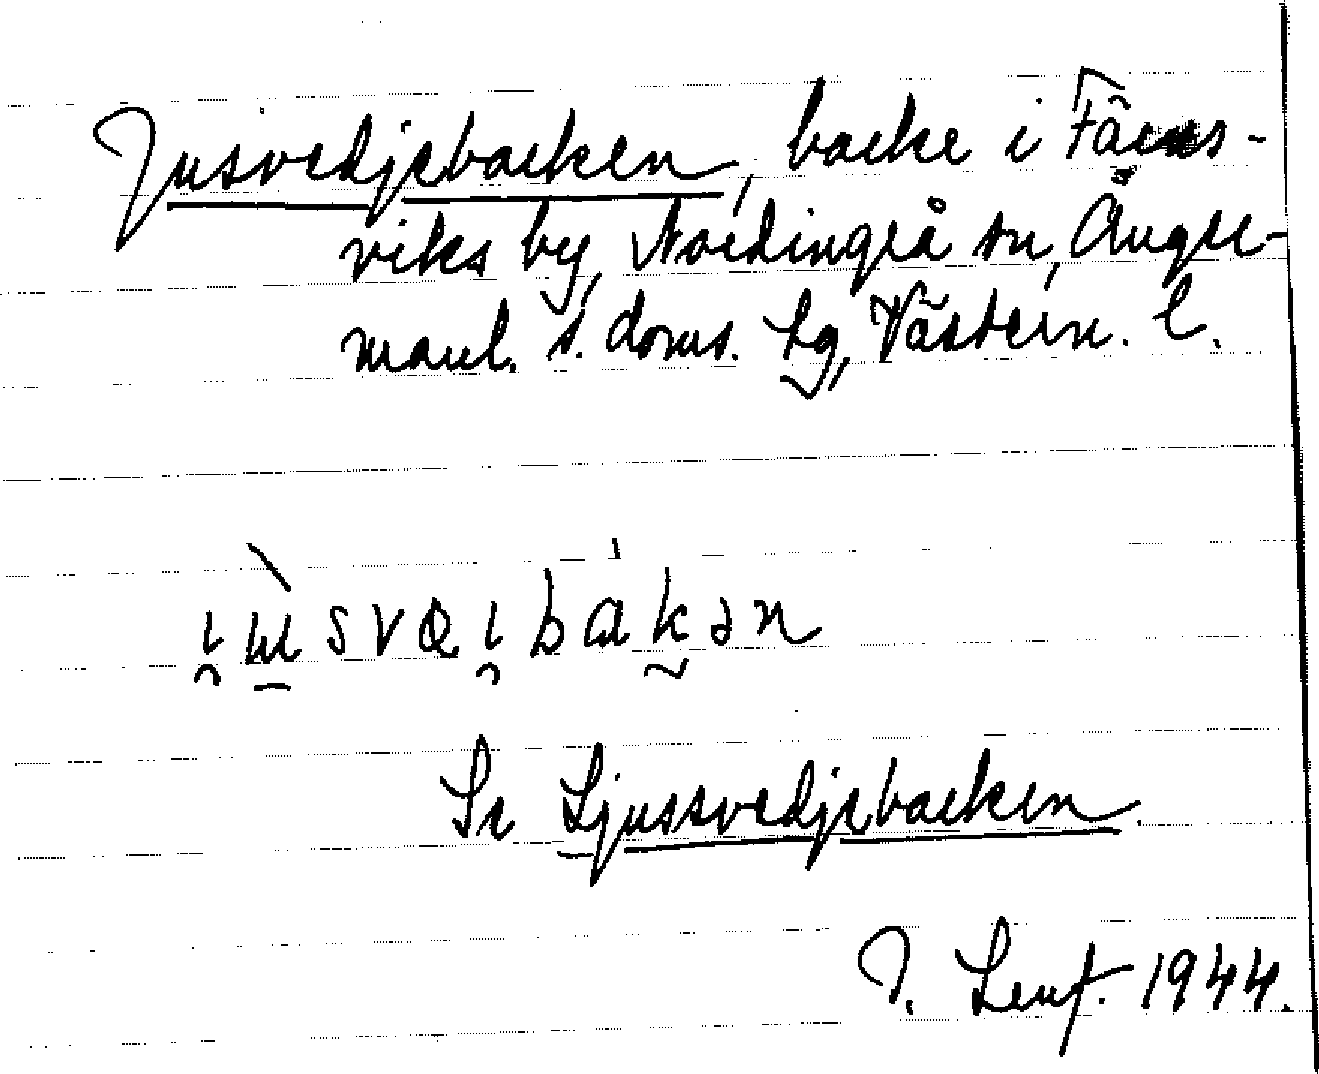 Jusvedjebacken, backe i Fäns-
viks by, Nordingrå sn, Ånger-
manl. s. doms. hg, Västern. l.
Se Ljussvedjebacken.
J. Lenf. 1944.